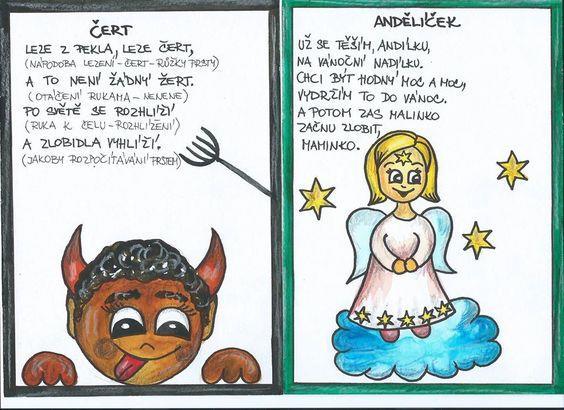 ČERT
LEZE Z PEKLA, LEZE ČERT,
(NÁPODOBA LEZENÍ-ČERT-RŮŽKY PRSTY)
A TO NENÍ ŽÁDNÝ ŽERT.
(OTÁČENÍ RUKAMA-NENENE)
PO SVĚTĚ SE ROZHLÍŽÍ
(RUKA K ČELU-ROZHLÍŽENÍ)
A ZLOBIDLA VYHLÍŽÍ.
(JAKOBY ROZPOČÍTÁVÁNÍ PRSTEM)
ANDĚLÍČEK
UŽ SE TĚŠÍM, ANDÍLKU,
NA VÁNOČNÍ NADÍLKU.
CHCI BÝT HODNÝ MOC A MOC,
VYDRŽÍM TO DO VÁNOC.
A POTOM ZAS MALINKO
ZAČNU ZLOBIT,
MAMINKO.